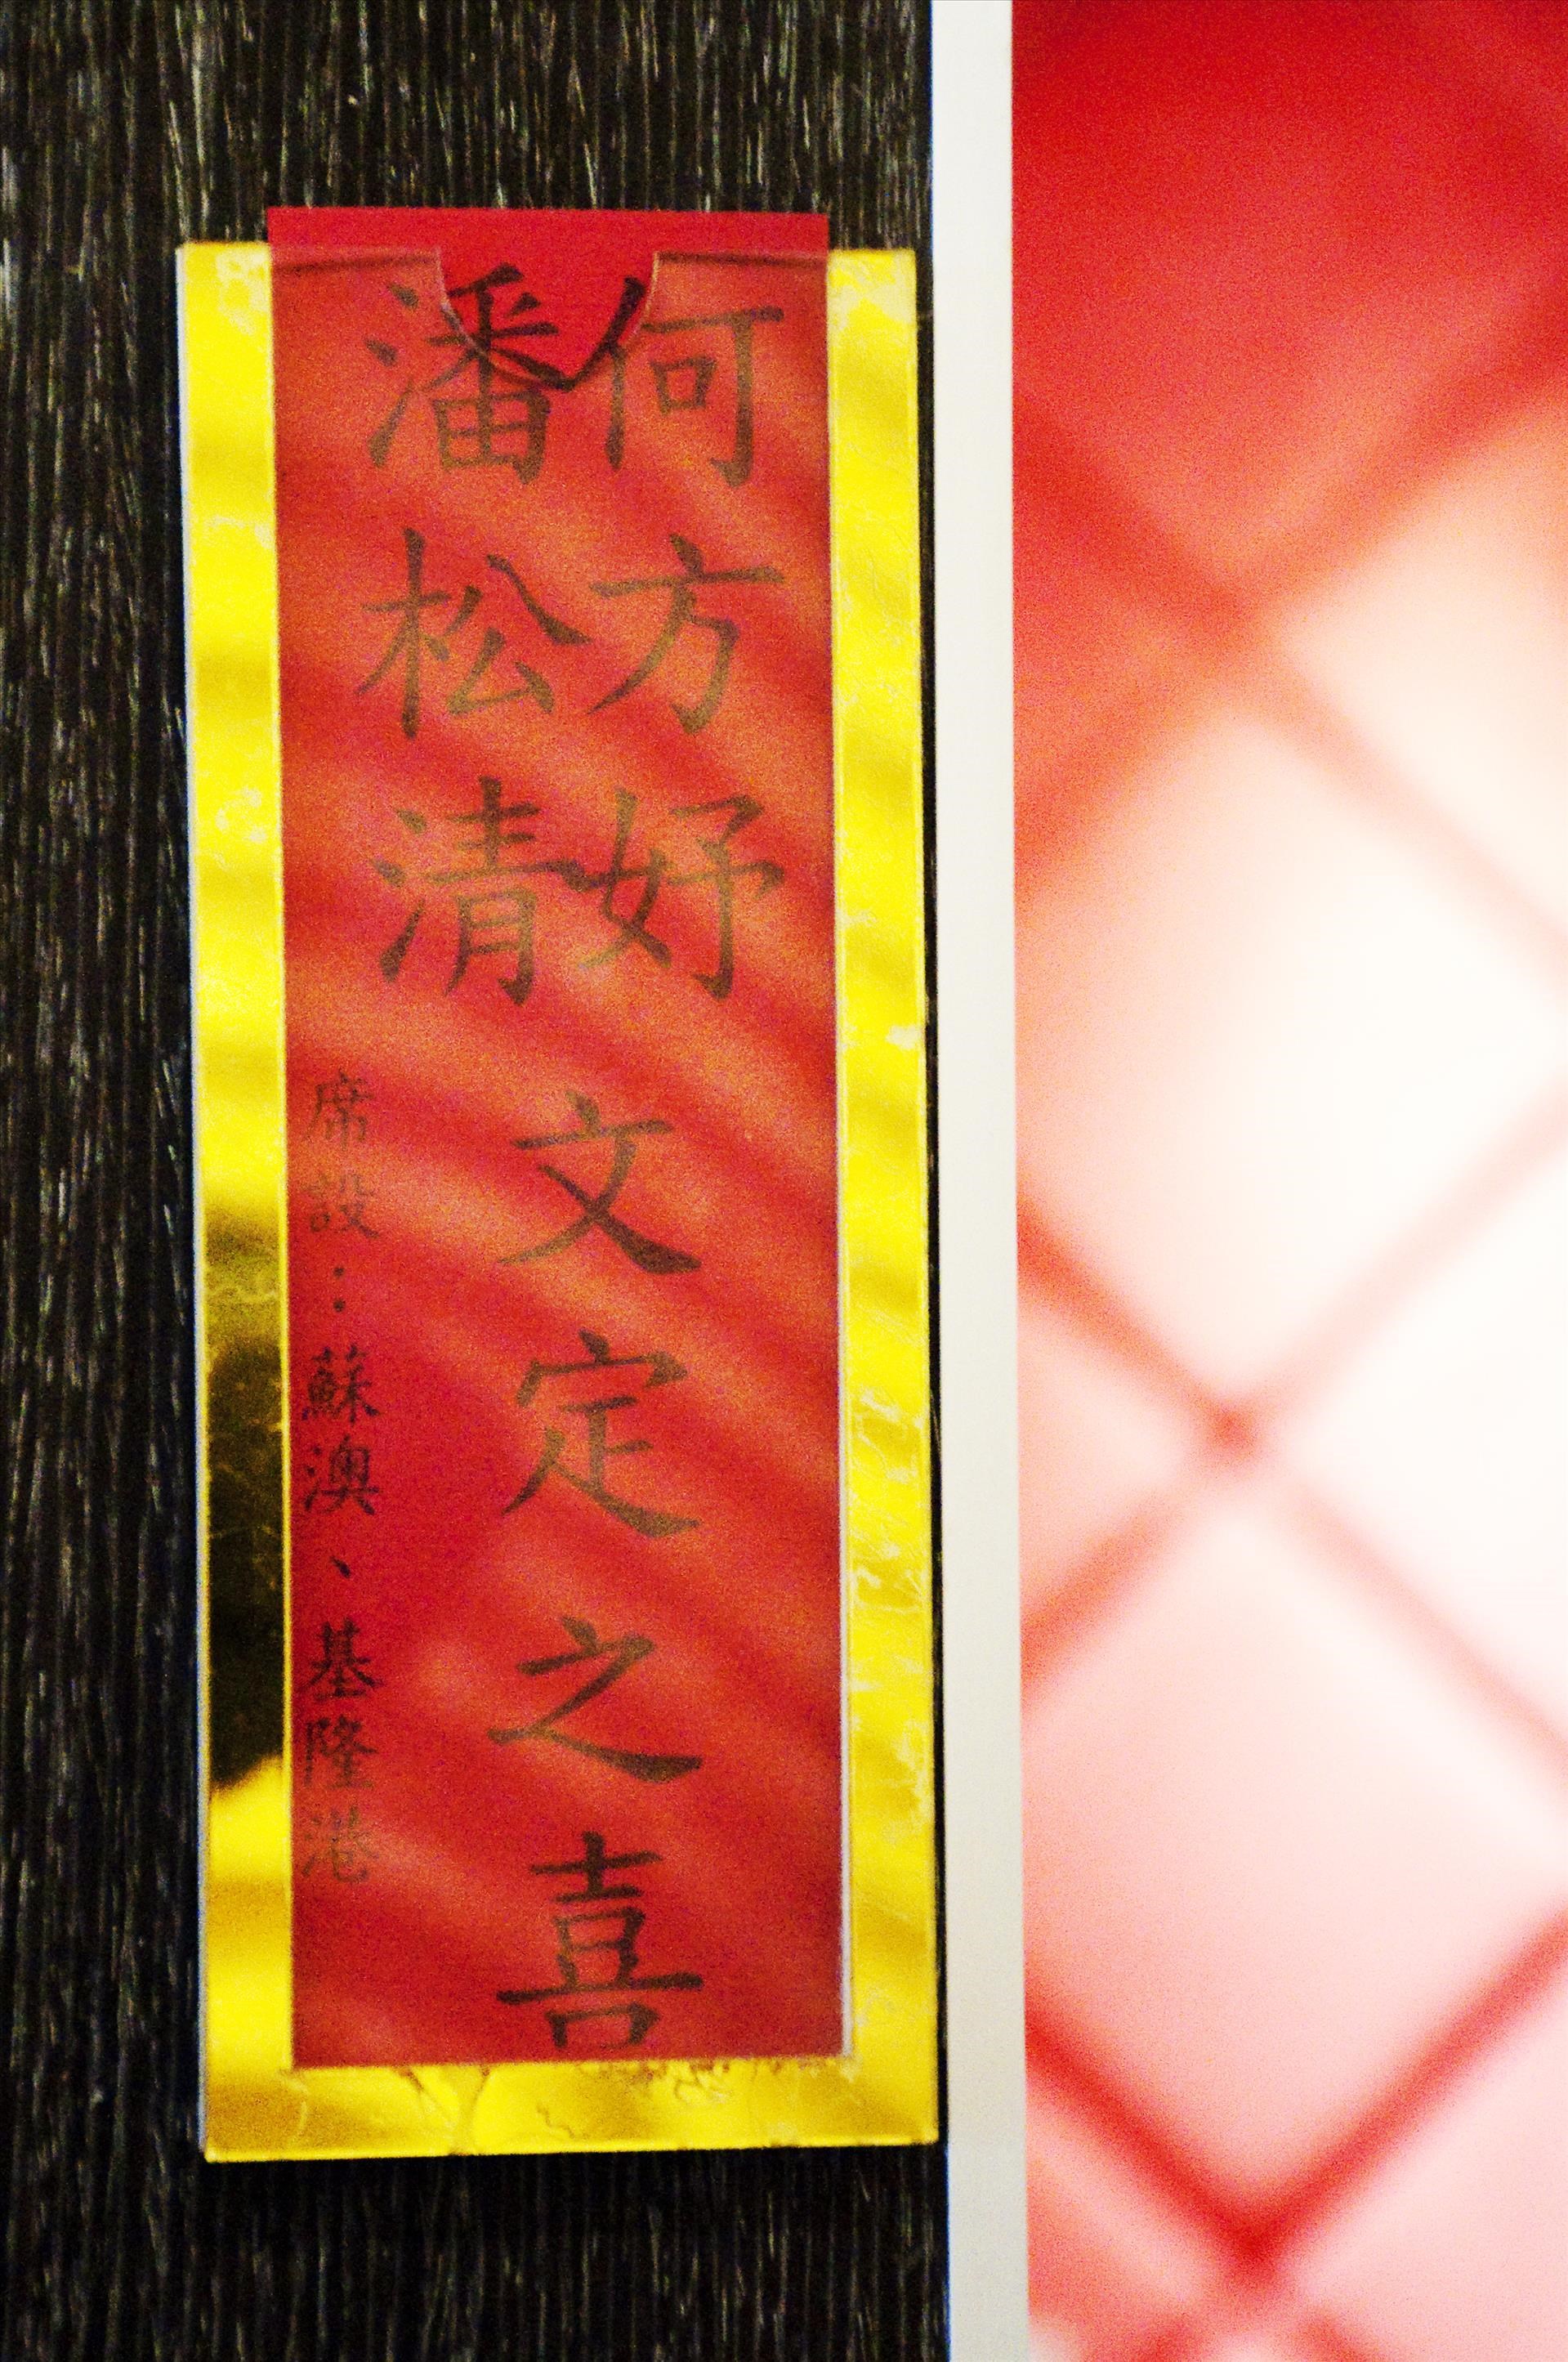 何方妤
潘松清
文定之喜
席設：蘇澳、基隆港